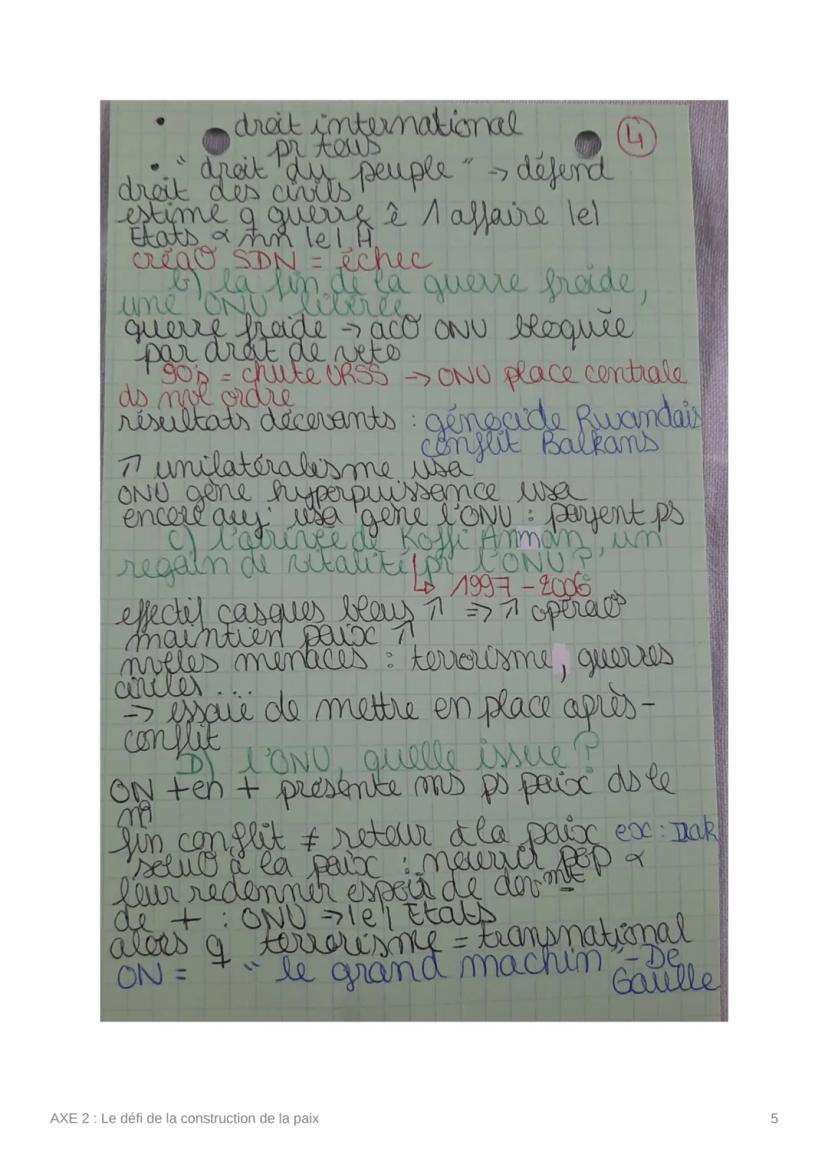 • droit international
④
pr tous
• "droit du peuple" → défend
droit des civils
estime q guerre ê 1 affaire |e|
Etats & mn |e| H
créaO SDN = échec
b) la fin de la guerre froide,
une ONU libérée
guerre froide → acO ONU bloquée
par droit de veto
90's = chute URSS → ONU place centrale
ds nvl ordre
résultats décevants : génocide Rwandais
conflit Balkans
↗ unilatéralisme usa
ONU gêne hyperpuissance usa
encore auj: usa gêne l'ONU : payent ps
c) l'arrivée de Koffi Annman, un
regain de vitalité pr l'ONU ?
↳ 1997 - 2006
effectif casques bleus ↗ => ↗ opéraOs
maintien paix ↗
nvelles menaces : terrorisme, guerres
civiles...
→ essaie de mettre en place après-
conflit
D) l'ONU, quelle issue ?
ON +en + présente ms ps paix ds le
md
fin conflit ≠ retour à la paix ex: Irak
soluO à la paix : nourrir pop &
leur redonner espoir de
de + : ONU => |e| Etats
alors q terrorisme = transnational
ON = "le grand machin" - De
Gaulle
AXE 2 : Le défi de la construction de la paix
5